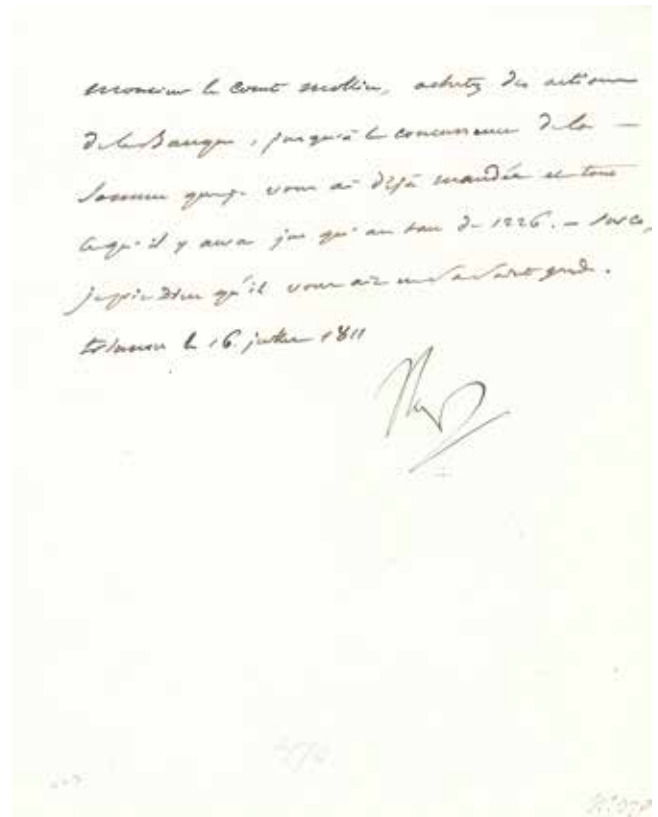 Monsieur le Comte Mollien, achetez des actions
de la Banque, jusqu'à la concurrence de la —
Somme que je vous ai déjà mandée et tout
ce qu'il y aura jusqu'au taux de 1226. — Sur ce,
je prie Dieu qu'il vous ait en Sa Sainte garde.
le 16. juillet 1811
Nap